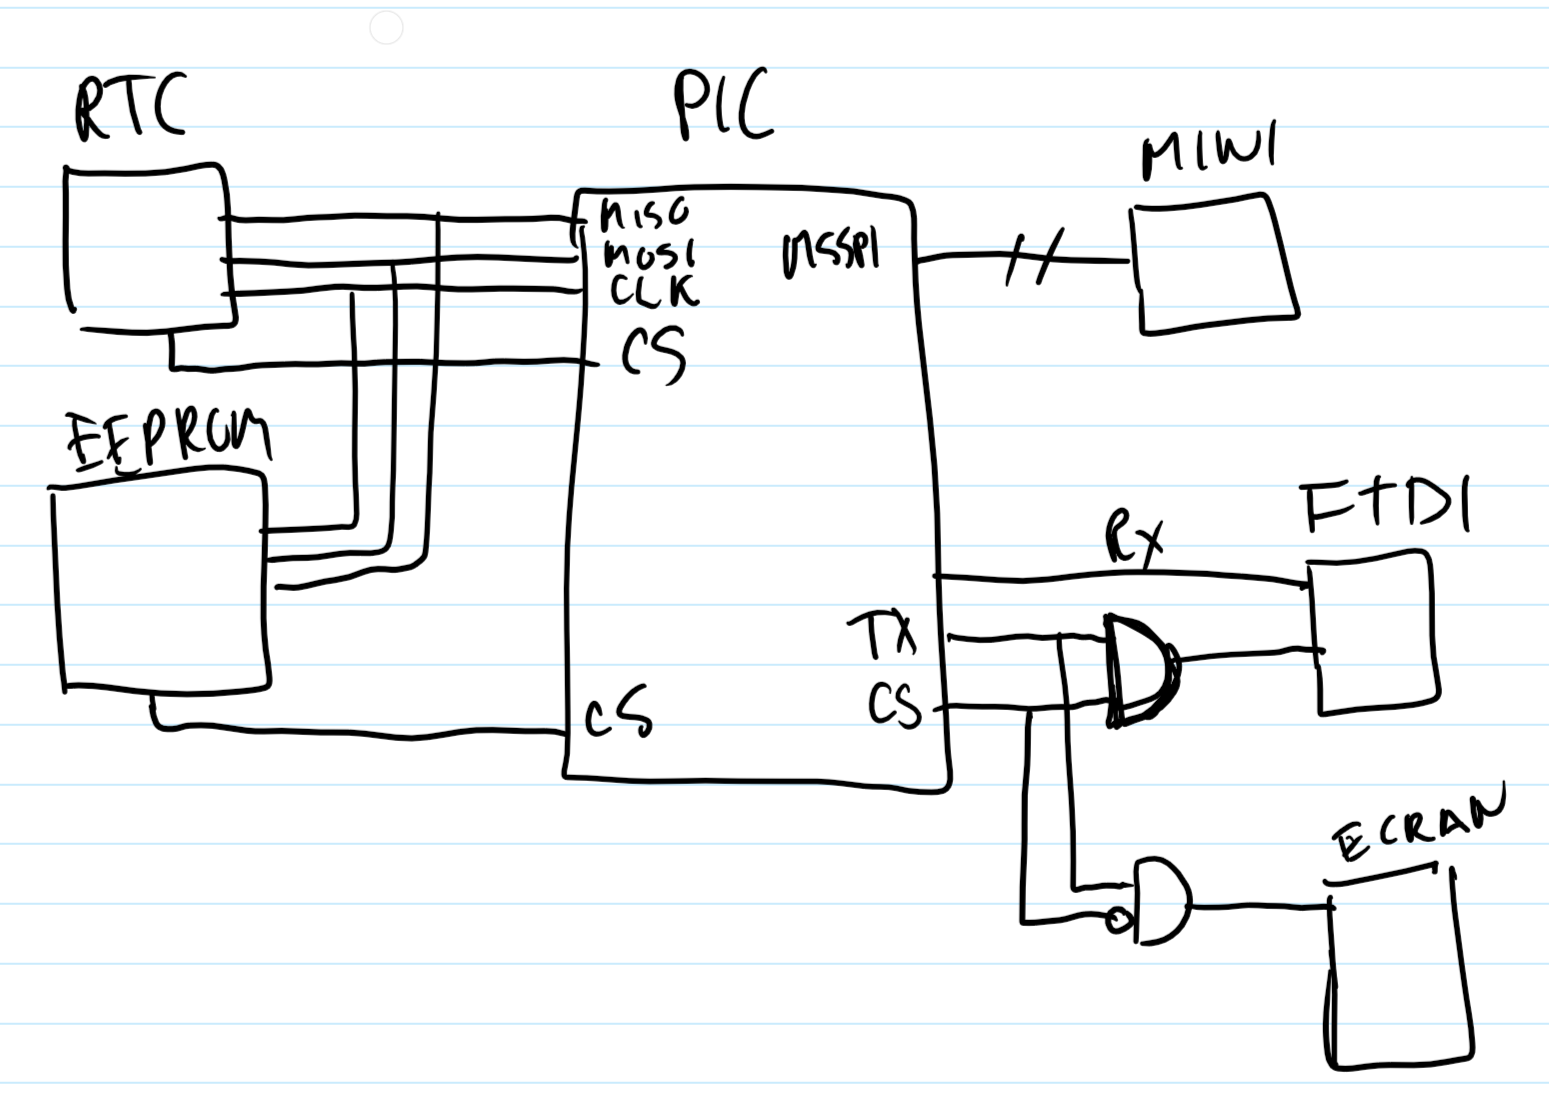 RTC
PIC
MIWI
MISO
MOSI
CLK
CS
MSSP1
EEPROM
FTDI
Rx
TX
CS
CS
ECRAN